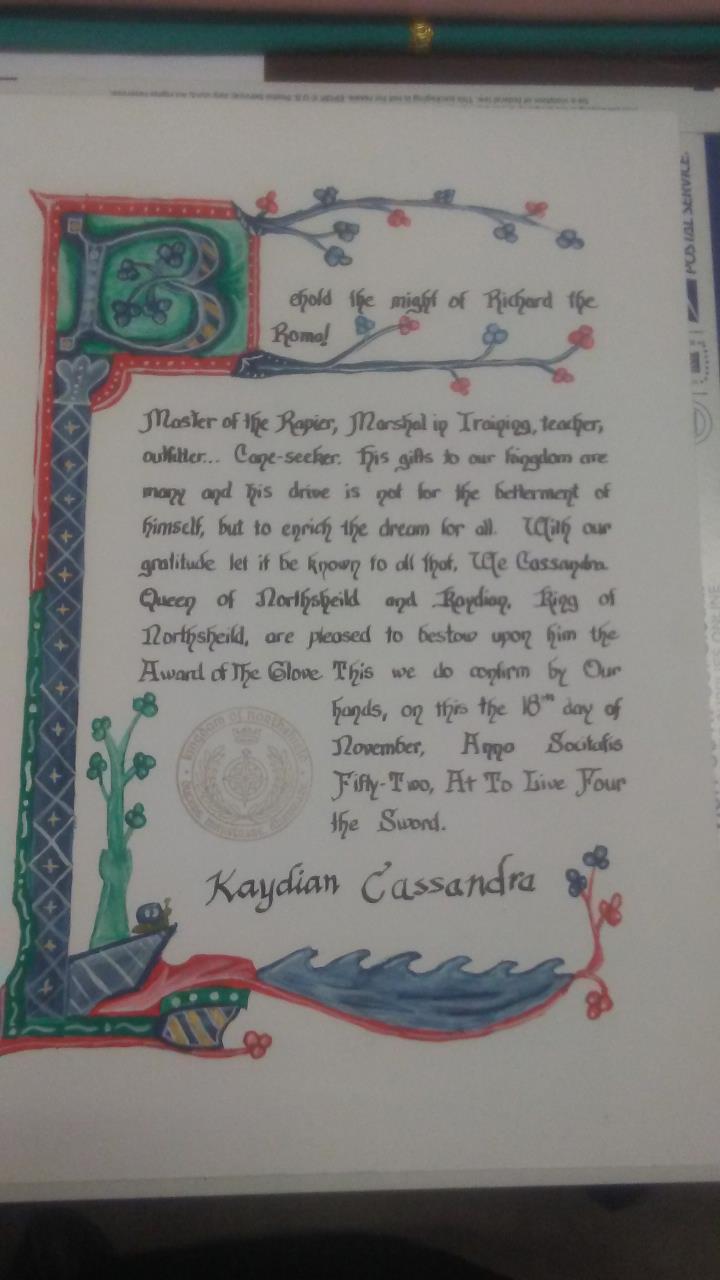 Behold the might of Richard the
Roma!
Master of the Rapier, Marshal in Training, teacher,
outfitter... Cane-seeker. His gifts to our kingdom are
many and his drive is not for the betterment of
himself, but to enrich the dream for all. With our
gratitude let it be known to all that, We Cassandra
Queen of Northsheild and Kaydian, King of
Northsheild, are pleased to bestow upon him the
Award of The Glove This we do confirm by Our
hands, on this the 18th day of
November, Anno Socitatis
Fifty-Two, At To Live Four
the Sword.
kingdom of northshield
Kaydian Cassandra
POSTAL SERVICE